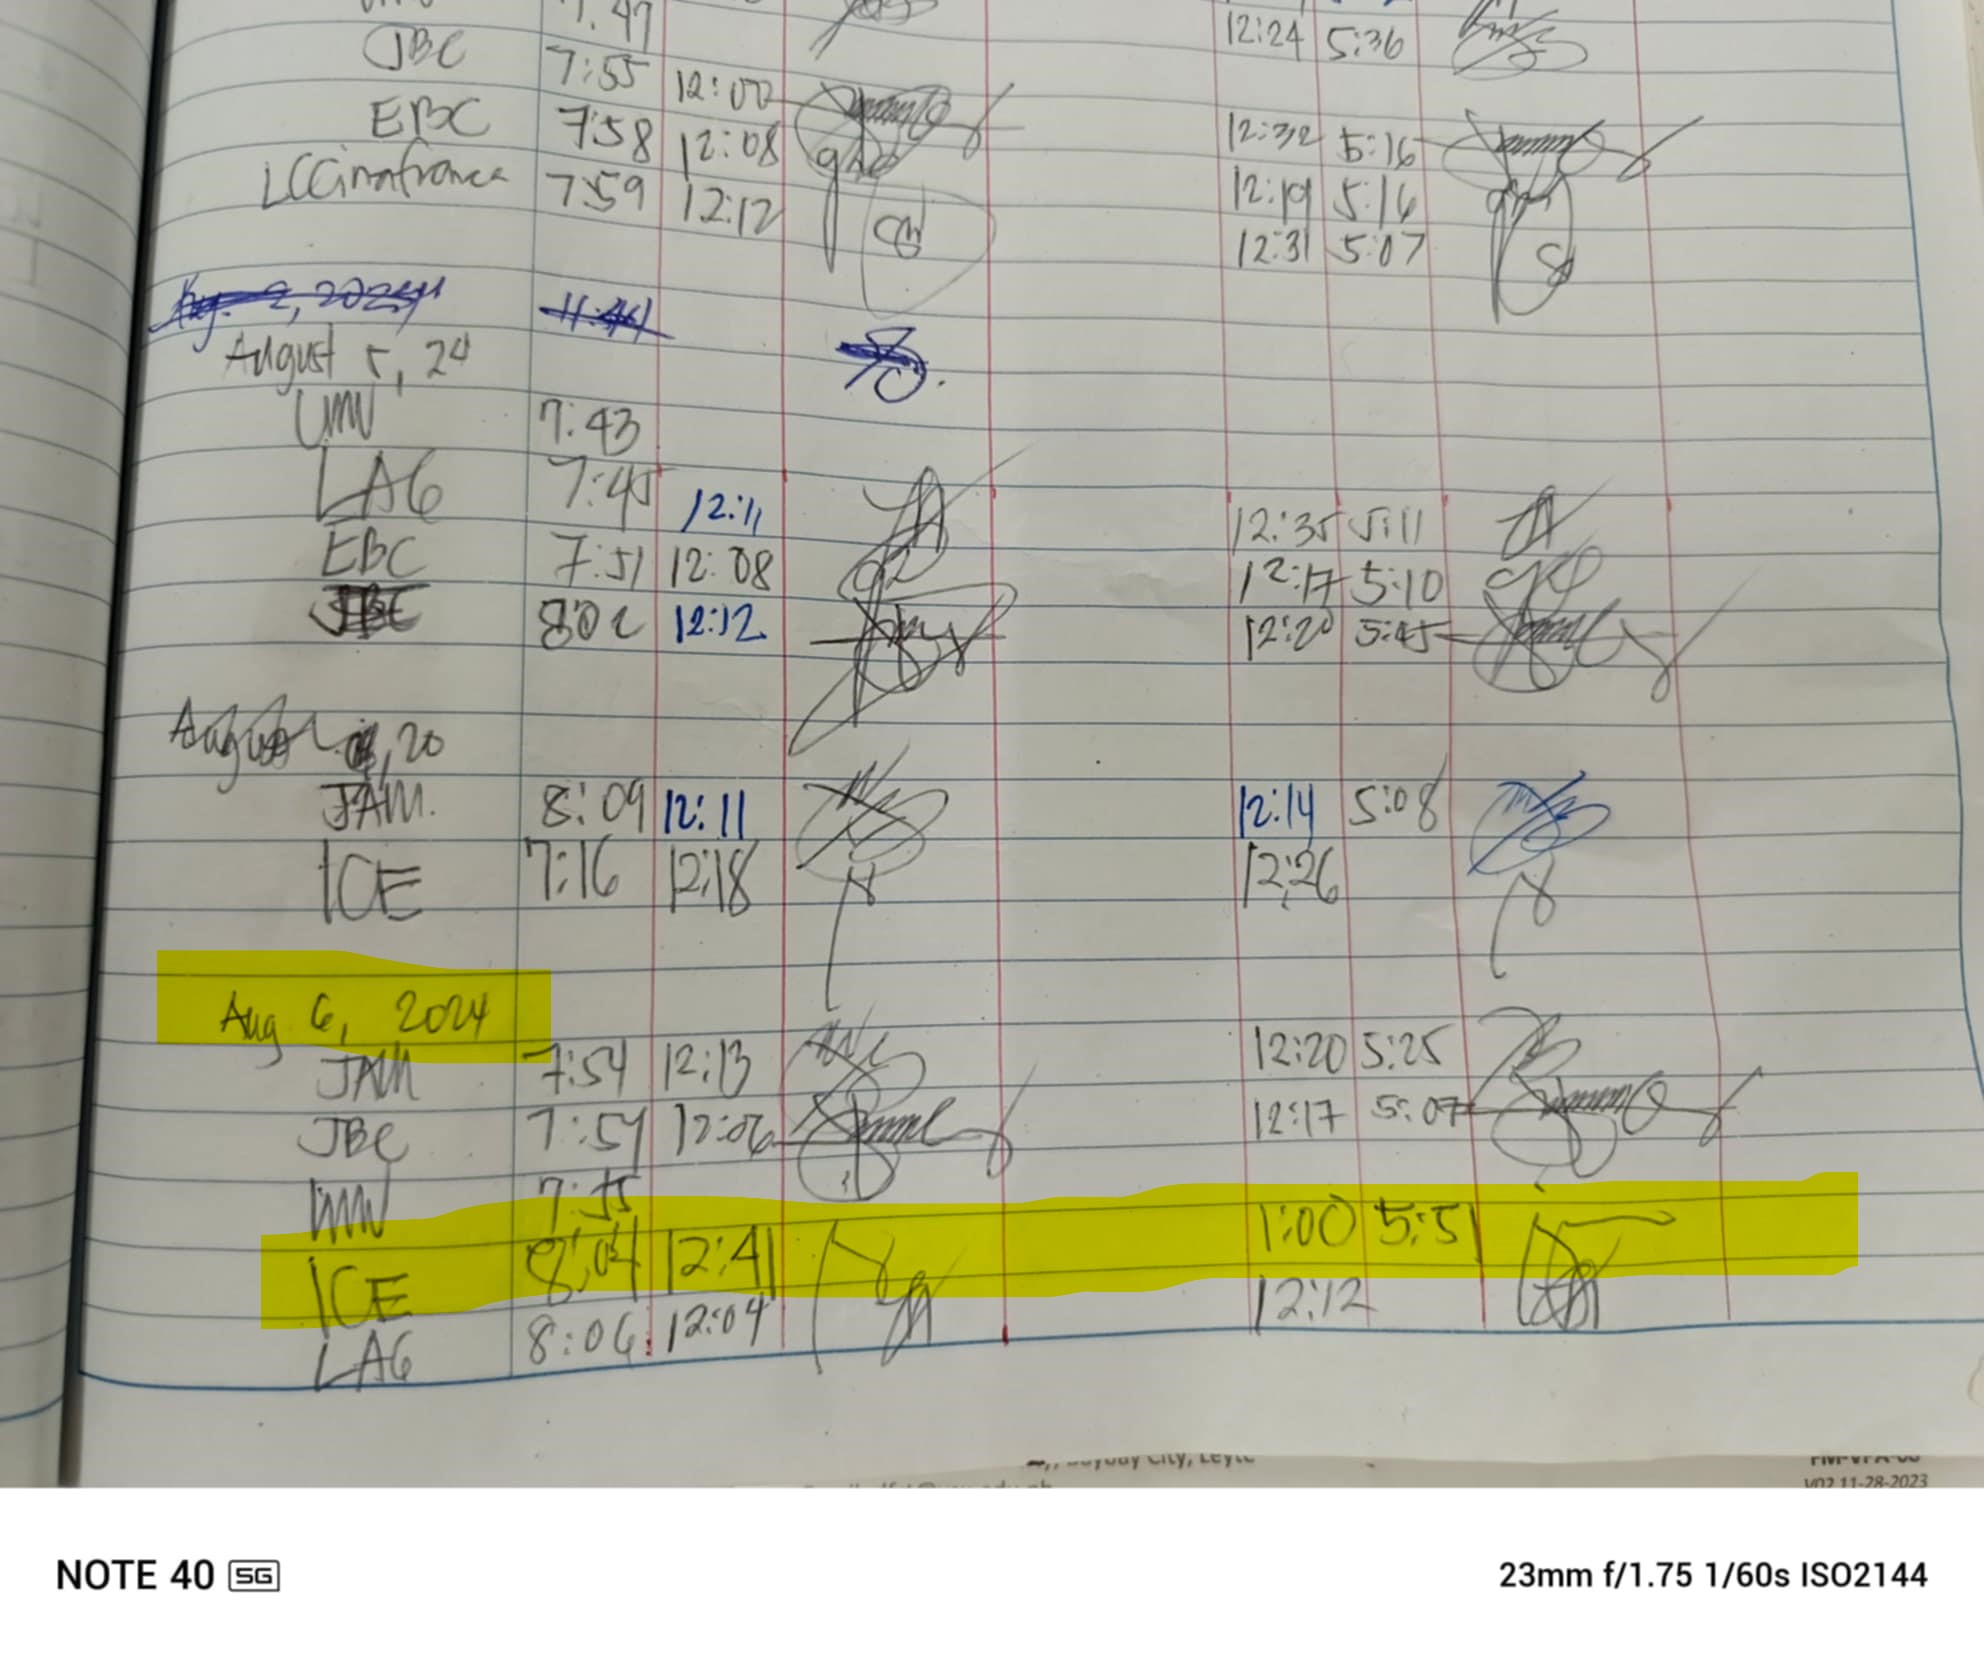 7:47 12:24 5:36
JBC 7:55 12:00 12:32 5:16
EBC 7:58 12:08 12:19 5:16
LCCinafranca 7:59 12:12 12:31 5:07
Aug. 2, 2024
August 5, 24
UMV 7:43
LAG 7:45 12:11 12:35 5:11
EBC 7:51 12:08 12:17 5:10
JBC 8:02 12:12 12:20 5:45
August 20
JAM. 8:09 12:11 12:14 5:08
ICE 7:16 12:18 12:26
Aug 6, 2024
JAM 7:54 12:13 12:20 5:25
JBC 7:54 12:06 12:17 5:07
7:55
ICE 8:04 12:41 1:00 5:51
LAG 8:06 12:04 12:12
City, Leyte
V02 11-28-2023
NOTE 40 5G
23mm f/1.75 1/60s ISO2144